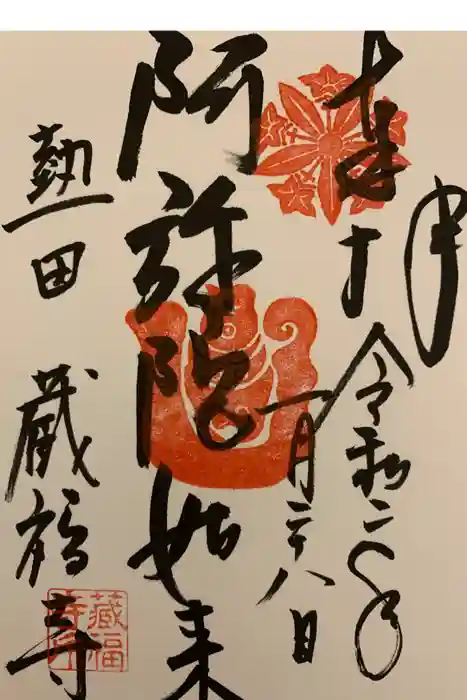 奉拝
令和二年
一月二十八日
阿弥陀如来
熱田 蔵福寺
蔵福
寺印